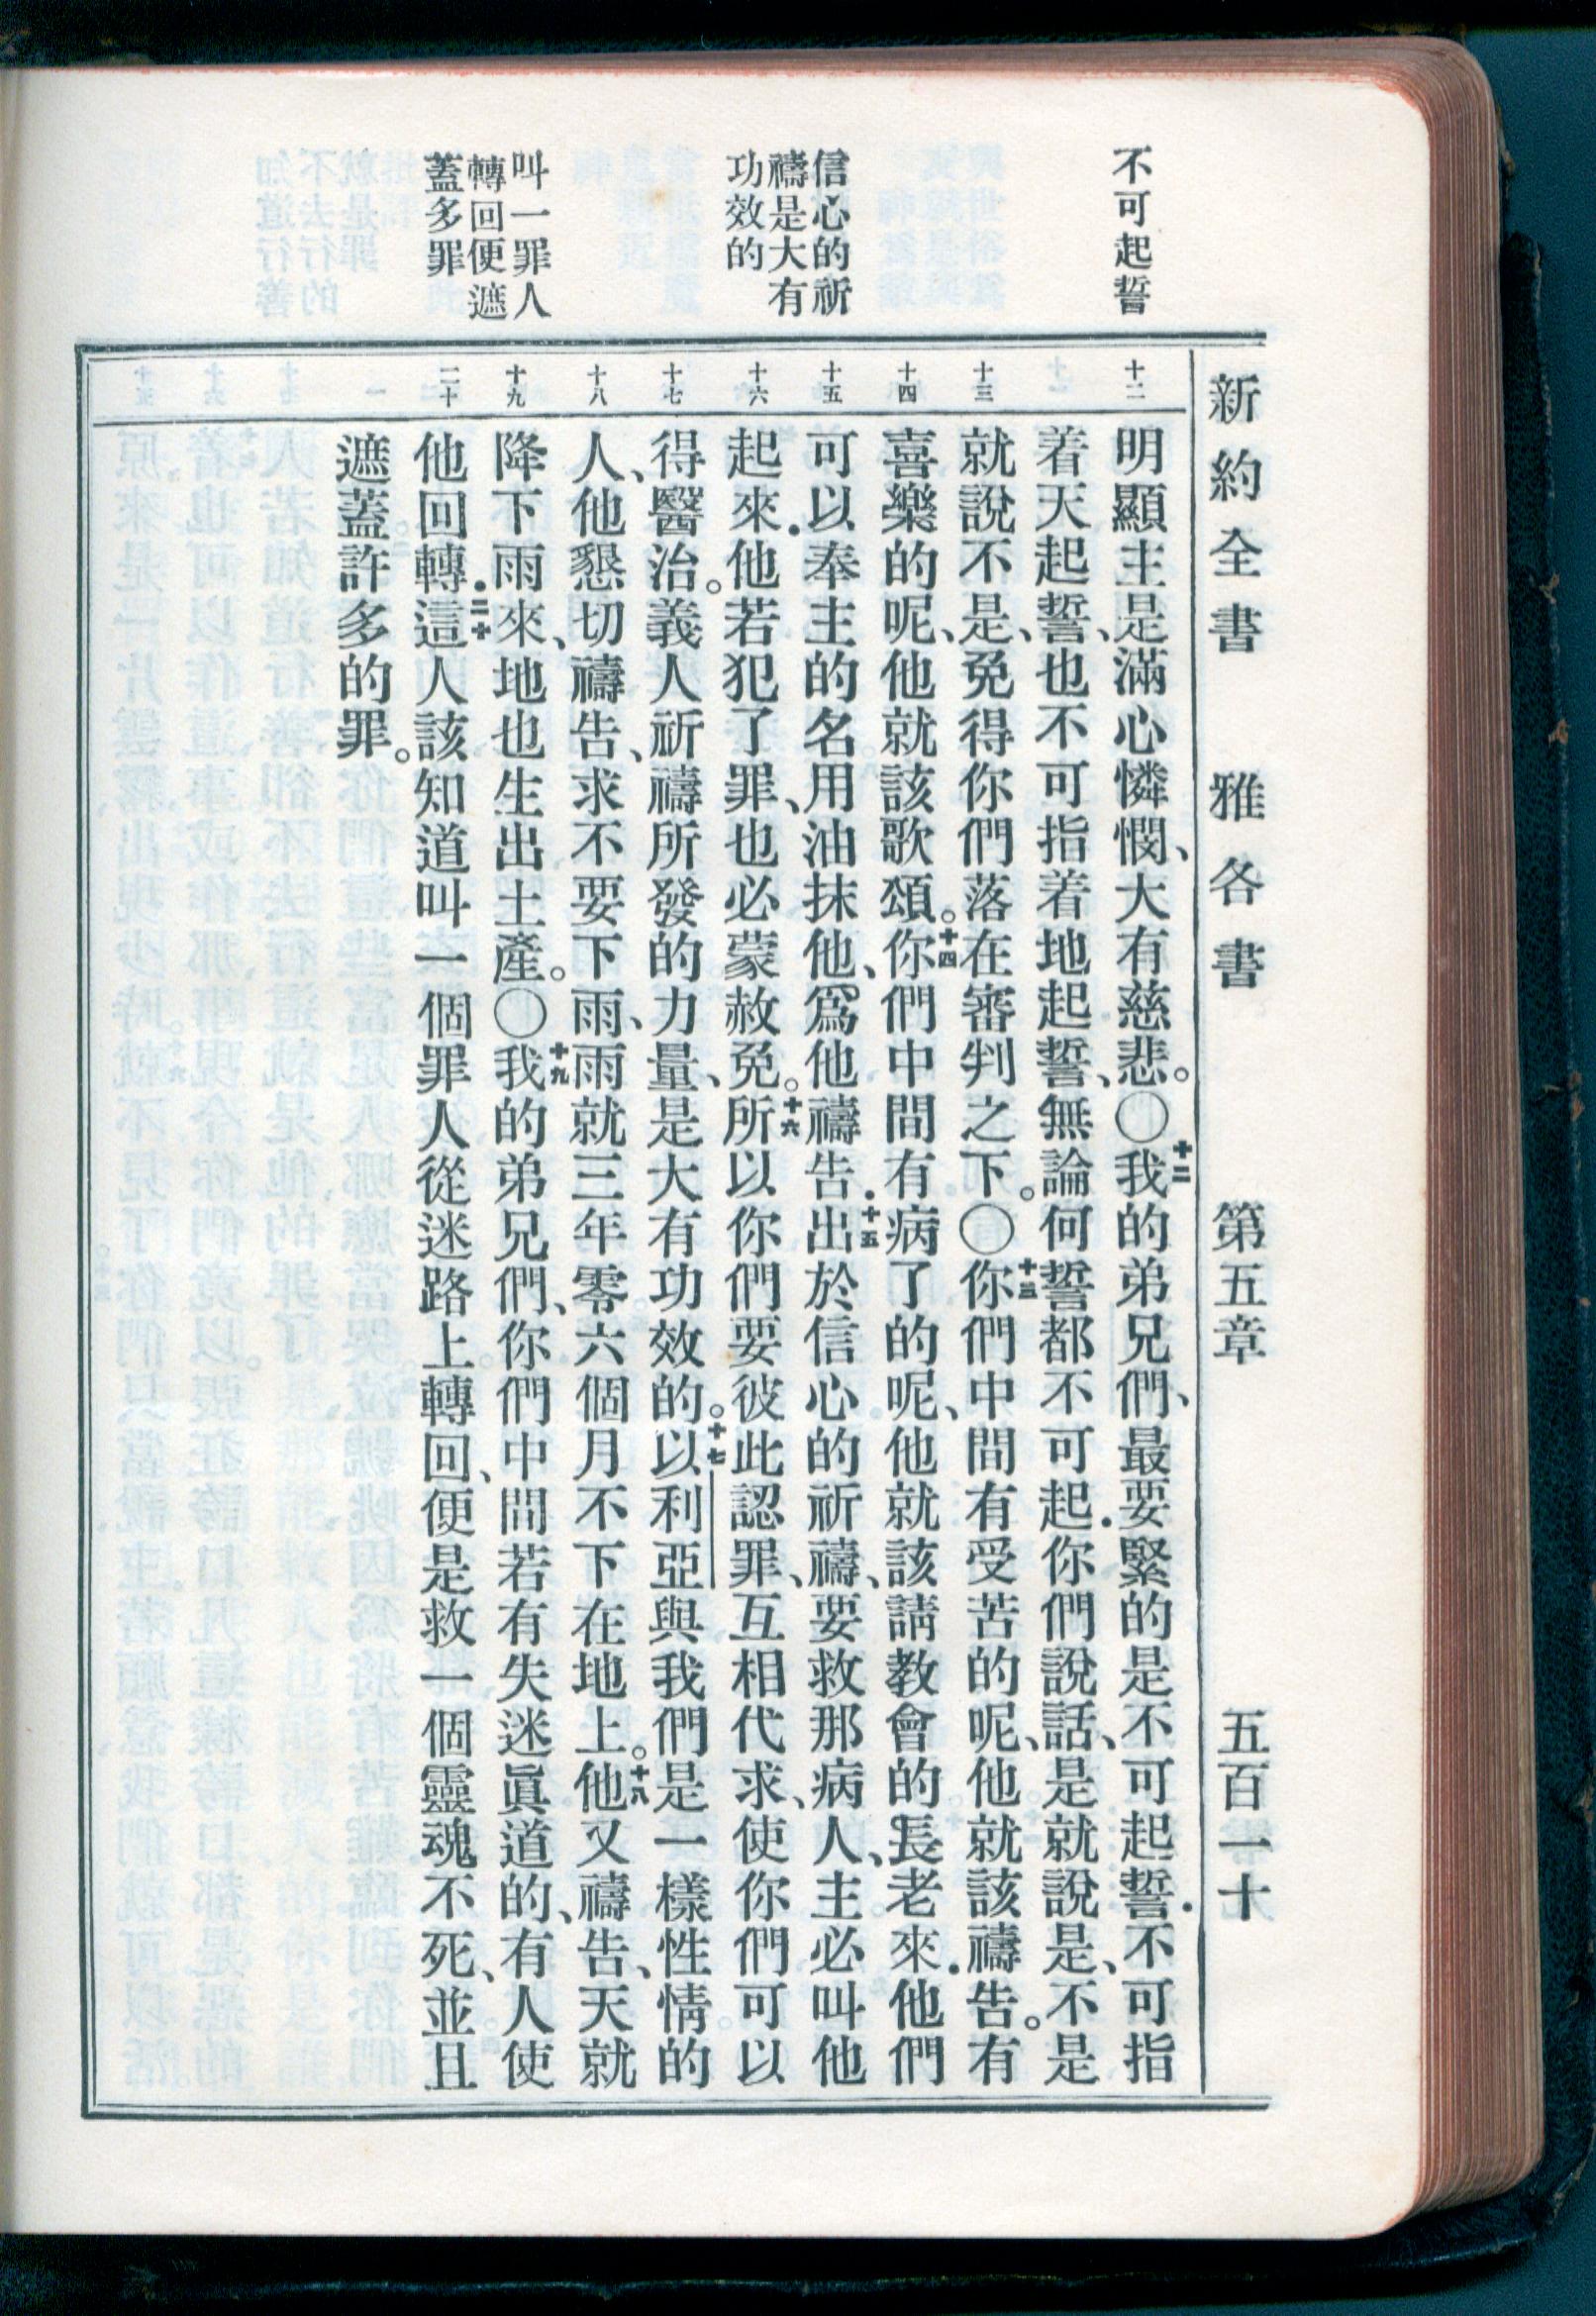 新約全書 雅各書 第五章 五百一十
不可起誓
信心的祈
禱是大有
功效的
叫一罪人
轉回便遮
蓋多罪
十二
十三
十四
十五
十六
十七
十八
十九
二十
明顯主是滿心憐憫、大有慈悲。〇十二我的弟兄們、最要緊的是不可起誓．不可指
着天起誓、也不可指着地起誓、無論何誓都不可起．你們說話、是就說是、不是
就說不是、免得你們落在審判之下。〇十三你們中間有受苦的呢、他就該禱告。有
喜樂的呢、他就該歌頌。十四你們中間有病了的呢、他就該請教會的長老來．他們
可以奉主的名用油抹他、爲他禱告．十五出於信心的祈禱、要救那病人、主必叫他
起來．他若犯了罪、也必蒙赦免。十六所以你們要彼此認罪、互相代求、使你們可以
得醫治。義人祈禱所發的力量、是大有功效的。十七以利亞與我們是一樣性情的
人、他懇切禱告、求不要下雨、雨就三年零六個月不下在地上。十八他又禱告、天就
降下雨來、地也生出土產。〇十九我的弟兄們、你們中間若有失迷眞道的、有人使
他回轉．二十這人該知道叫一個罪人從迷路上轉回、便是救一個靈魂不死、並且
遮蓋許多的罪。